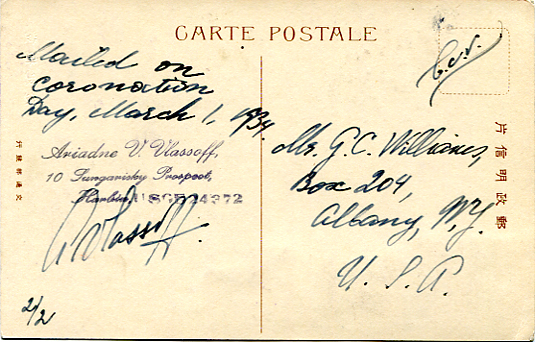 CARTE POSTALE
Mailed on
coronation
Day, March 1, 1934.
Ariadne V. Vlassoff,
10 Sungarisky Prospect,
Harbin USGE24372
Vlassoff
2/2
Mr. G.C. Williams,
Box 204,
Albany, N.Y.
U. S. A.
片信明政郵
行發部通交